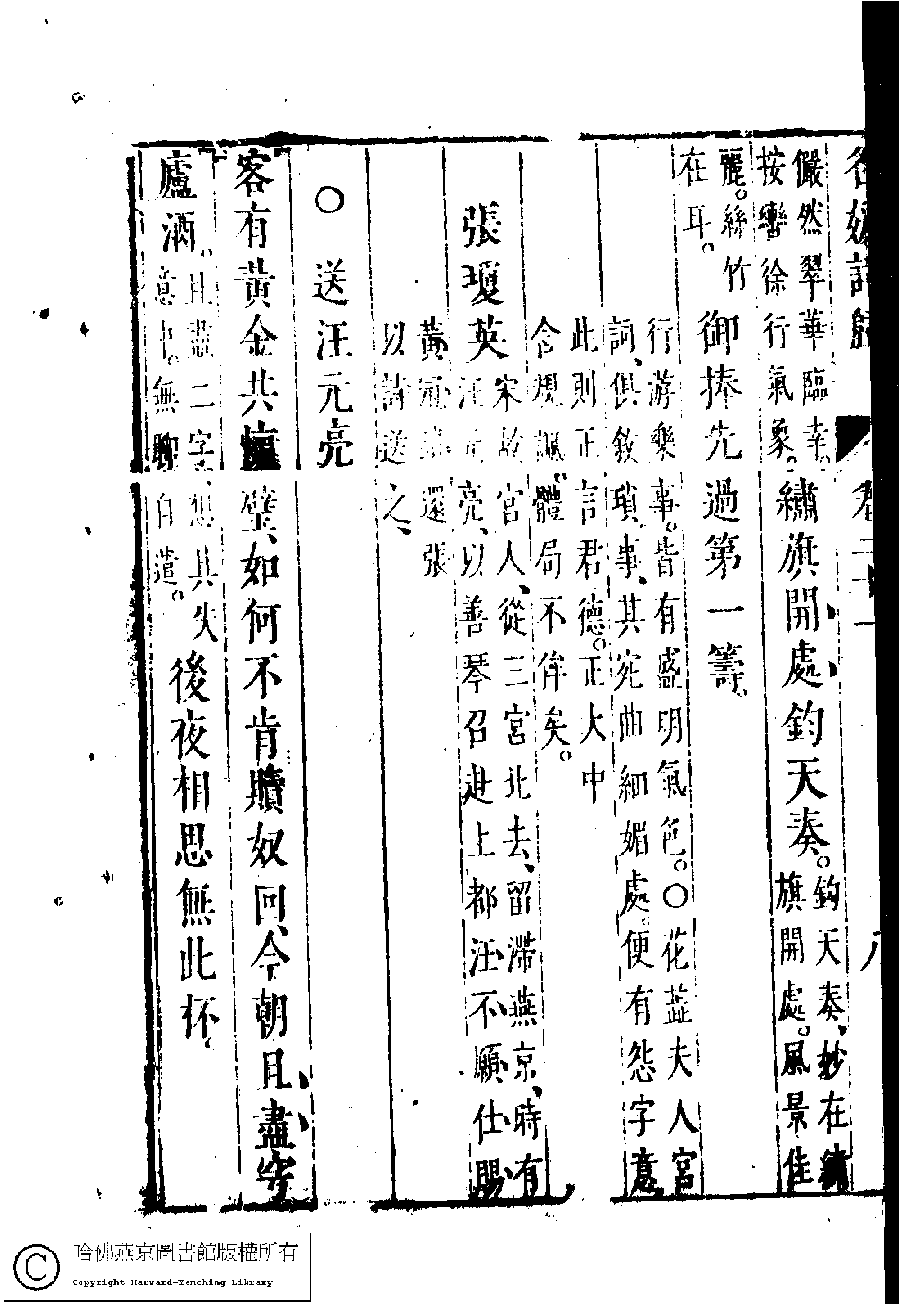 名媛詩歸 卷二十一 八
儼然翠華臨幸。
按轡徐行氣象。
繡旗開處鈞天奏。
鈞天奏、妙在繡
旗開處。風景佳
麗。絲竹
在耳。
御捧先過第一籌。
行游樂事。皆有盛明氣色。〇花蕋夫人宮
詞、俱敘瑣事、其宛曲細媚處。便有怨字意
此則正言君德。正大中
含規諷。體局不侔矣。
張瓊英
宋故宮人、從三宮北去、留滯燕京、時有
汪元亮、以善琴召赴上都汪不願仕賜
黃冠還張
以詩送之、
〇送汪元亮
客有黃金共璧、如何不肯贖奴回、今朝且盡穹
廬酒。
且盡二字、想其失
意中。無聊自遣。
後夜相思無此杯。
哈佛燕京圖書館版權所有
Copyright Harvard-Yenching Library